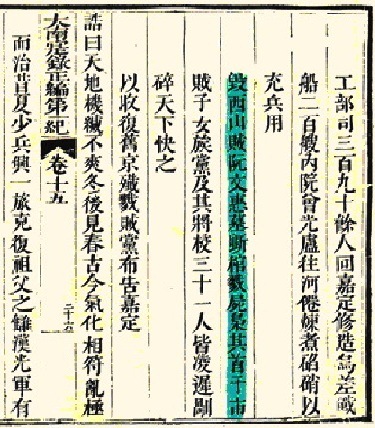 工部司三百九十餘人回嘉定修造烏差戰
船二百艘內院曾光廬往河僊煉煮硝以
充兵用
毀西山賊阮文惠墓斲棺戮屍梟其首于市
賊子女族黨及其將校三十一人皆凌遲
碎天下快之
以收復舊京殲戮賊黨布告嘉定
誥曰天地機緘不爽冬後見春古今氣化相符亂極
大南寔錄正編第一紀 卷十五 二十六
而治昔夏少兵興一旅克復祖父之讎漢光軍有